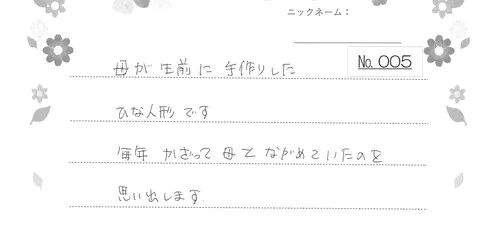 ニックネーム：
No. 005
母が生前に手作りした
ひな人形です
毎年かざって母とながめていたのを
思い出します